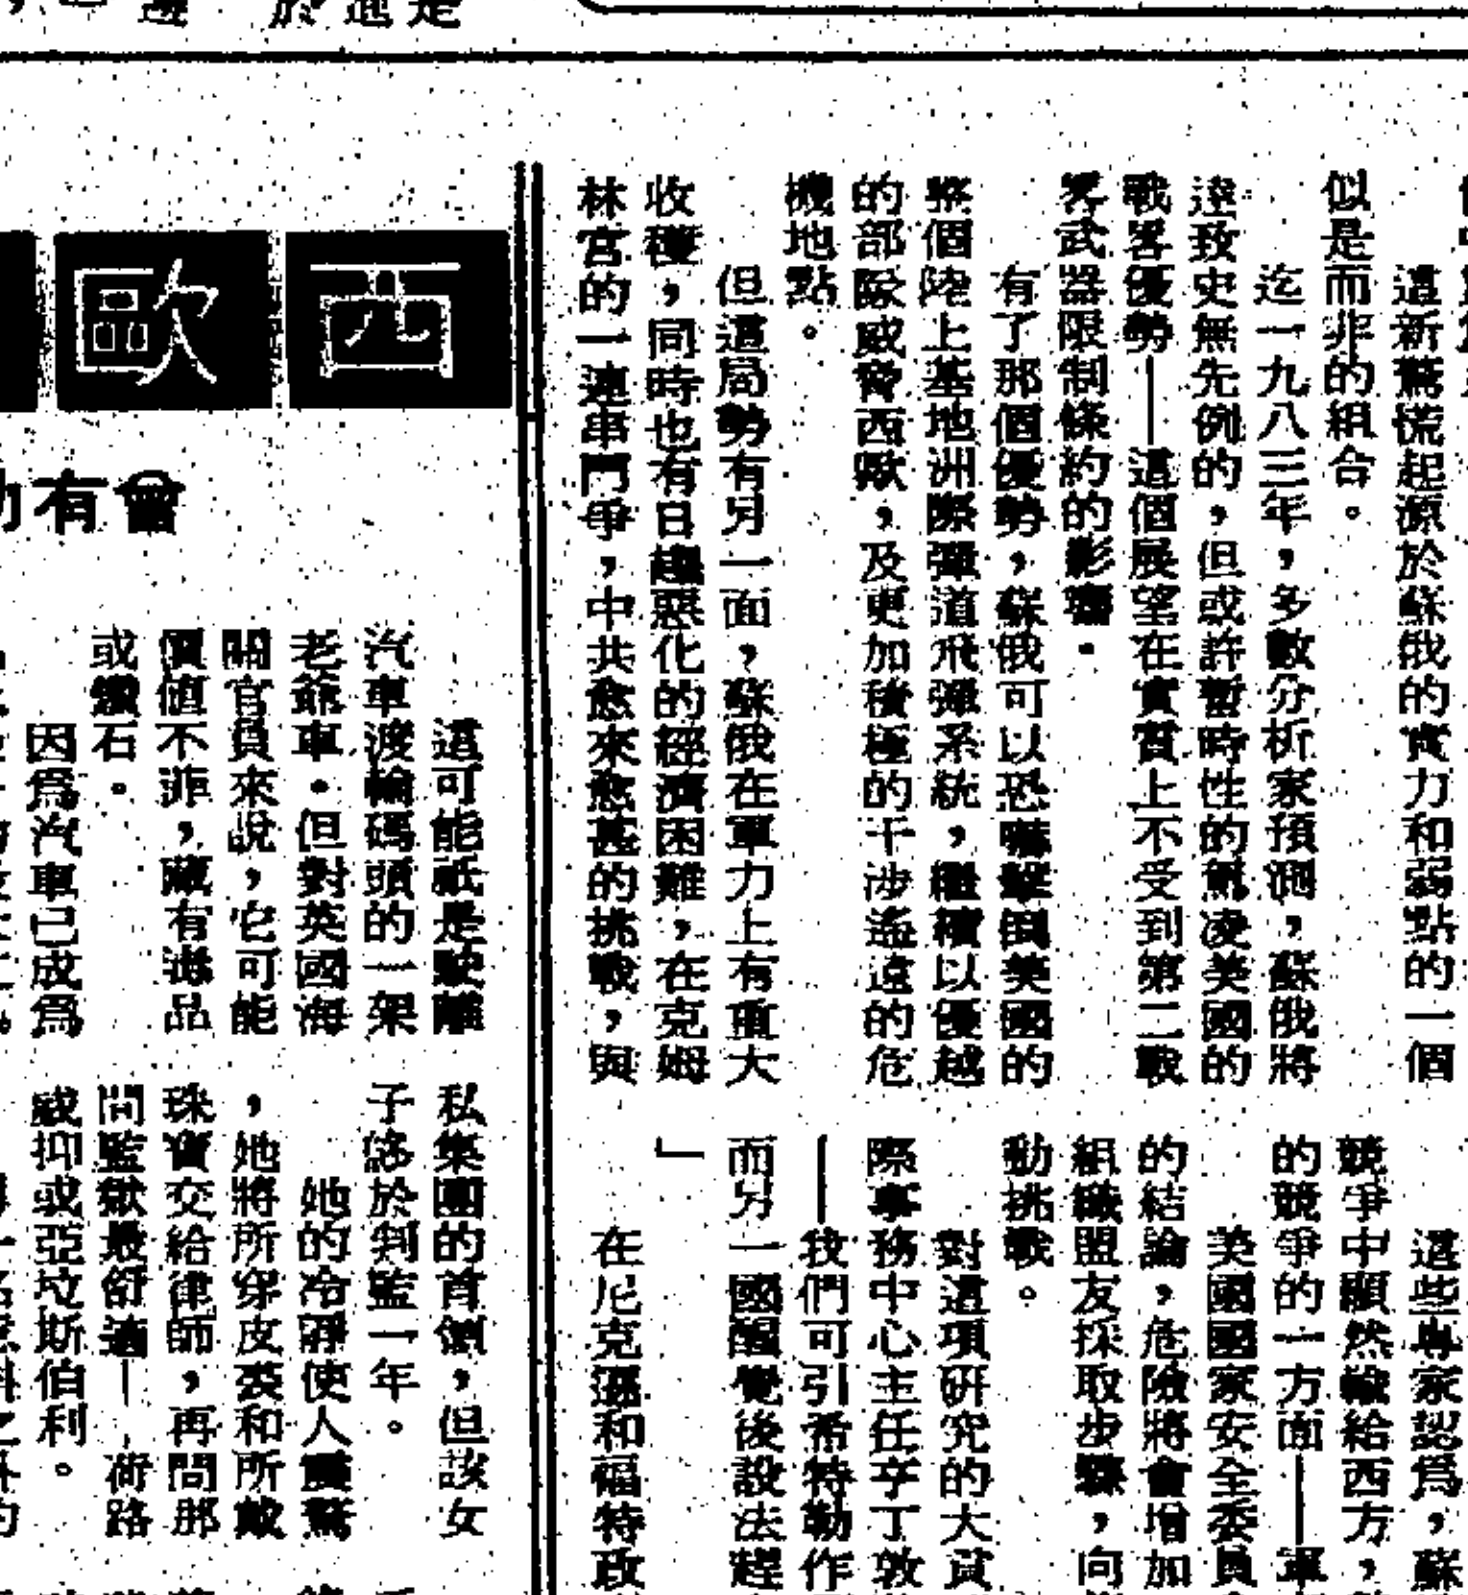 這新驚慌起源於蘇俄的實力和弱點的一個
似是而非的組合。
迄一九八三年，多數分析家預測，蘇俄將
達致史無先例的，但或許暫時性的凌美國的
戰畧優勢——這個展望在實質上不受到第二戰
畧武器限制條約的影響．
有了那個優勢，蘇俄可以恐嚇擊倒美國的
整個陸上基地洲際彈道飛彈系統，繼續以優越
的部隊威脅西歐，及更加積極的干涉遙遠的危
機地點。
但這局勢有另一面，蘇俄在軍力上有重大
收穫，同時也有日趨惡化的經濟困難，在克姆
林宮的一連串鬥爭，中共愈來愈甚的挑戰，與
這些專家認爲，蘇
競爭中顯然輸給西方，
的競爭的一方面——軍
美國國家安全委員
的結論，危險將會增加
組織盟友採取步驟，向
動挑戰。
對這項研究的大
際事務中心主任辛丁敦
——我們可引希特勒作
而另一國醒覺後設法趕
」
在尼克遜和福特政
西歐
會有
這可能祇是駛離
汽車渡輪碼頭的一架
老爺車．但對英國海
關官員來說，它可能
價值不菲，藏有毒品
或鑽石。
因爲汽車已成爲
私集團的首領，但該女
子終於判監一年。
她的冷靜使人震驚
，她將所穿皮裘和所戴
珠寶交給律師，再問那
問監獄最舒適—，荷路
威抑或亞垃斯伯利。